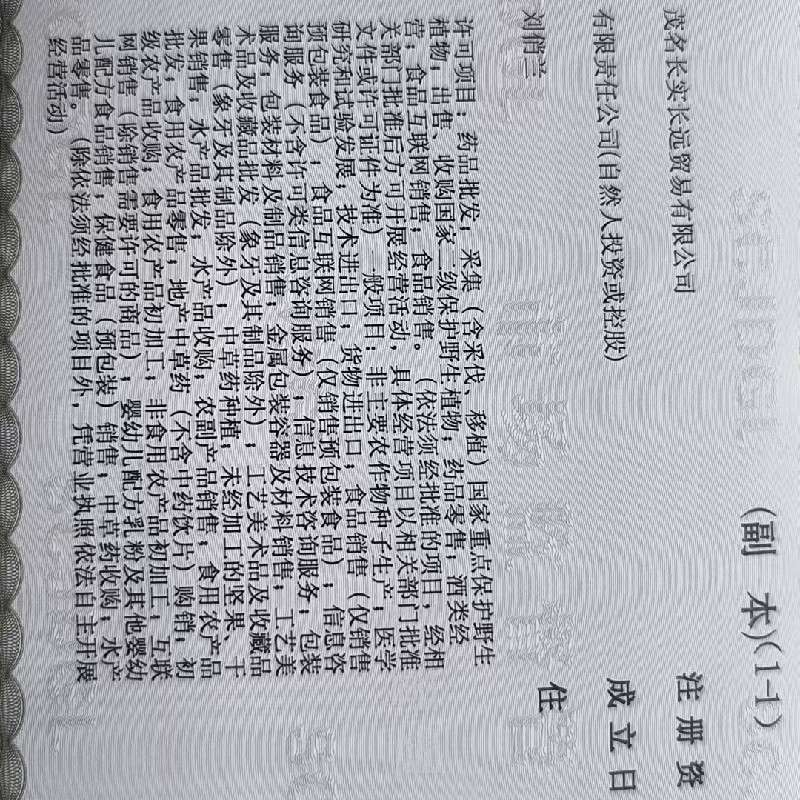 （副 本）（1-1）
茂名长实长远贸易有限公司
注 册 资
有限责任公司(自然人投资或控股)
成 立 日
刘俏兰
住
许可项目：药品批发；采集（含采伐、移植）国家重点保护野生
植物；出售、收购国家二级保护野生植物；药品零售；酒类经
营；食品互联网销售；食品销售。（依法须经批准的项目，经相
关部门批准后方可开展经营活动，具体经营项目以相关部门批准
文件或许可证件为准）一般项目：非主要农作物种子生产；医学
研究和试验发展；技术进出口；货物进出口；食品销售（仅销售
预包装食品）；食品互联网销售（仅销售预包装食品）；信息咨
询服务（不含许可类信息咨询服务）；信息技术咨询服务；包装
服务；包装材料及制品销售；金属包装容器及材料销售；工艺美
术品及收藏品批发（象牙及其制品除外）；工艺美术品及收藏品
零售（象牙及其制品除外）；中草药种植；未经加工的坚果、干
果销售；水产品批发；水产品收购；农副产品销售；食用农产品
批发；食用农产品零售；地产中草药（不含中药饮片）购销；初
级农产品收购；食用农产品初加工；非食用农产品初加工；互联
网销售（除销售需要许可的商品）；婴幼儿配方乳粉及其他婴幼
儿配方食品销售；保健食品（预包装）销售；中草药收购；水产
品零售。（除依法须经批准的项目外，凭营业执照依法自主开展
经营活动）